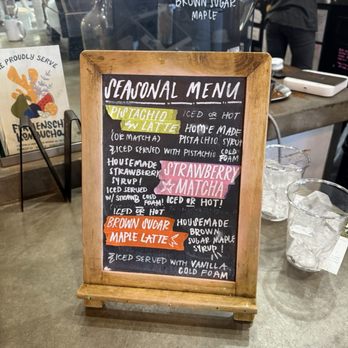 BROWN SUGAR
MAPLE
WE PROUDLY SERVE
KOMBUCHA
SEASONAL MENU
PISTACHIO
LATTE
(OR MATCHA)
ICED OR HOT
HOMEMADE
PISTACHIO SYRUP
ICED SERVED WITH PISTACHIO COLD
FOAM
HOUSEMADE
STRAWBERRY
SYRUP!
ICED SERVED
COLD
FOAM!
STRAWBERRY
MATCHA
ICED OR HOT!
ICED OR HOT
BROWN SUGAR
MAPLE LATTE
HOUSEMADE
BROWN
SUGAR MAPLE
SYRUP!
ICED SERVED WITH VANILLA
COLD FOAM